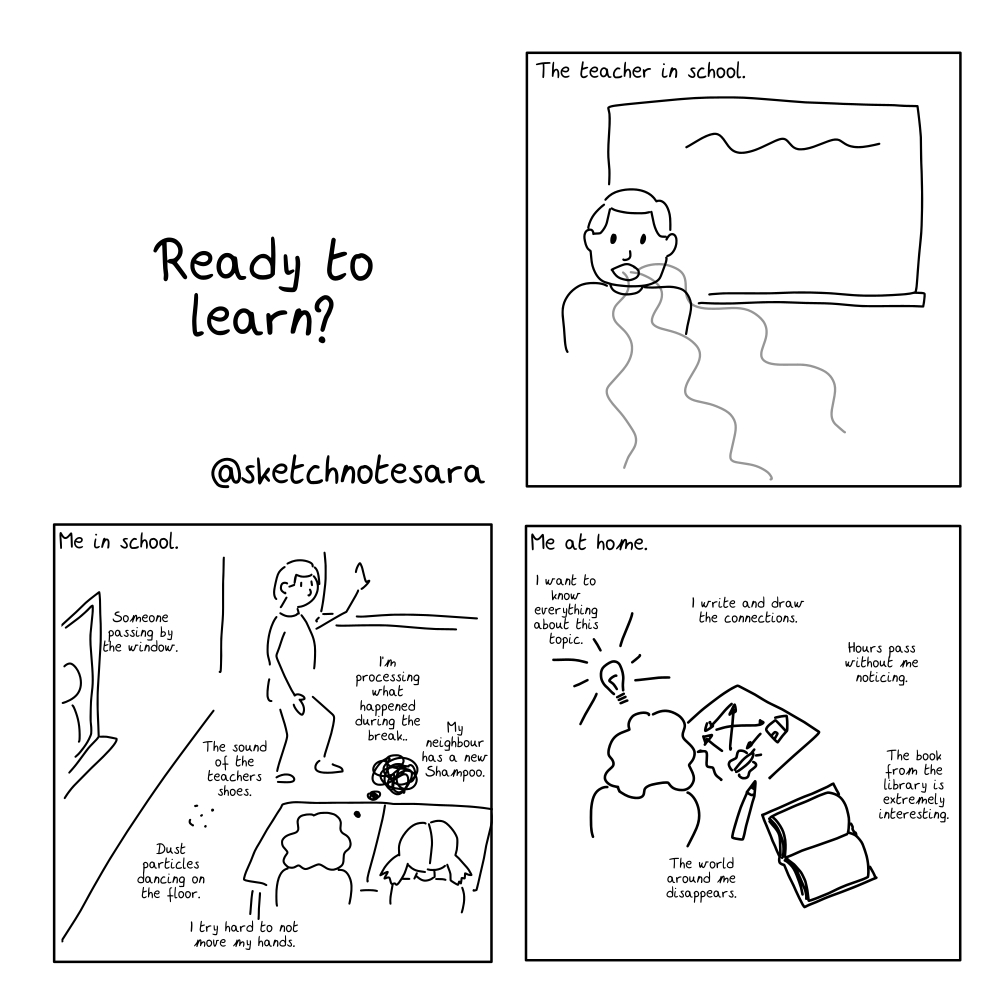 Ready to
learn?
@sketchnotesara
The teacher in school.
Me in school.
Someone
passing by
the window.
I'm
processing
what
happened
during the
break..
My
neighbour
has a new
Shampoo.
The sound
of the
teachers
shoes.
Dust
particles
dancing on
the floor.
I try hard to not
move my hands.
Me at home.
I want to
know
everything
about this
topic.
I write and draw
the connections.
Hours pass
without me
noticing.
The book
from the
library is
extremely
interesting.
The world
around me
disappears.